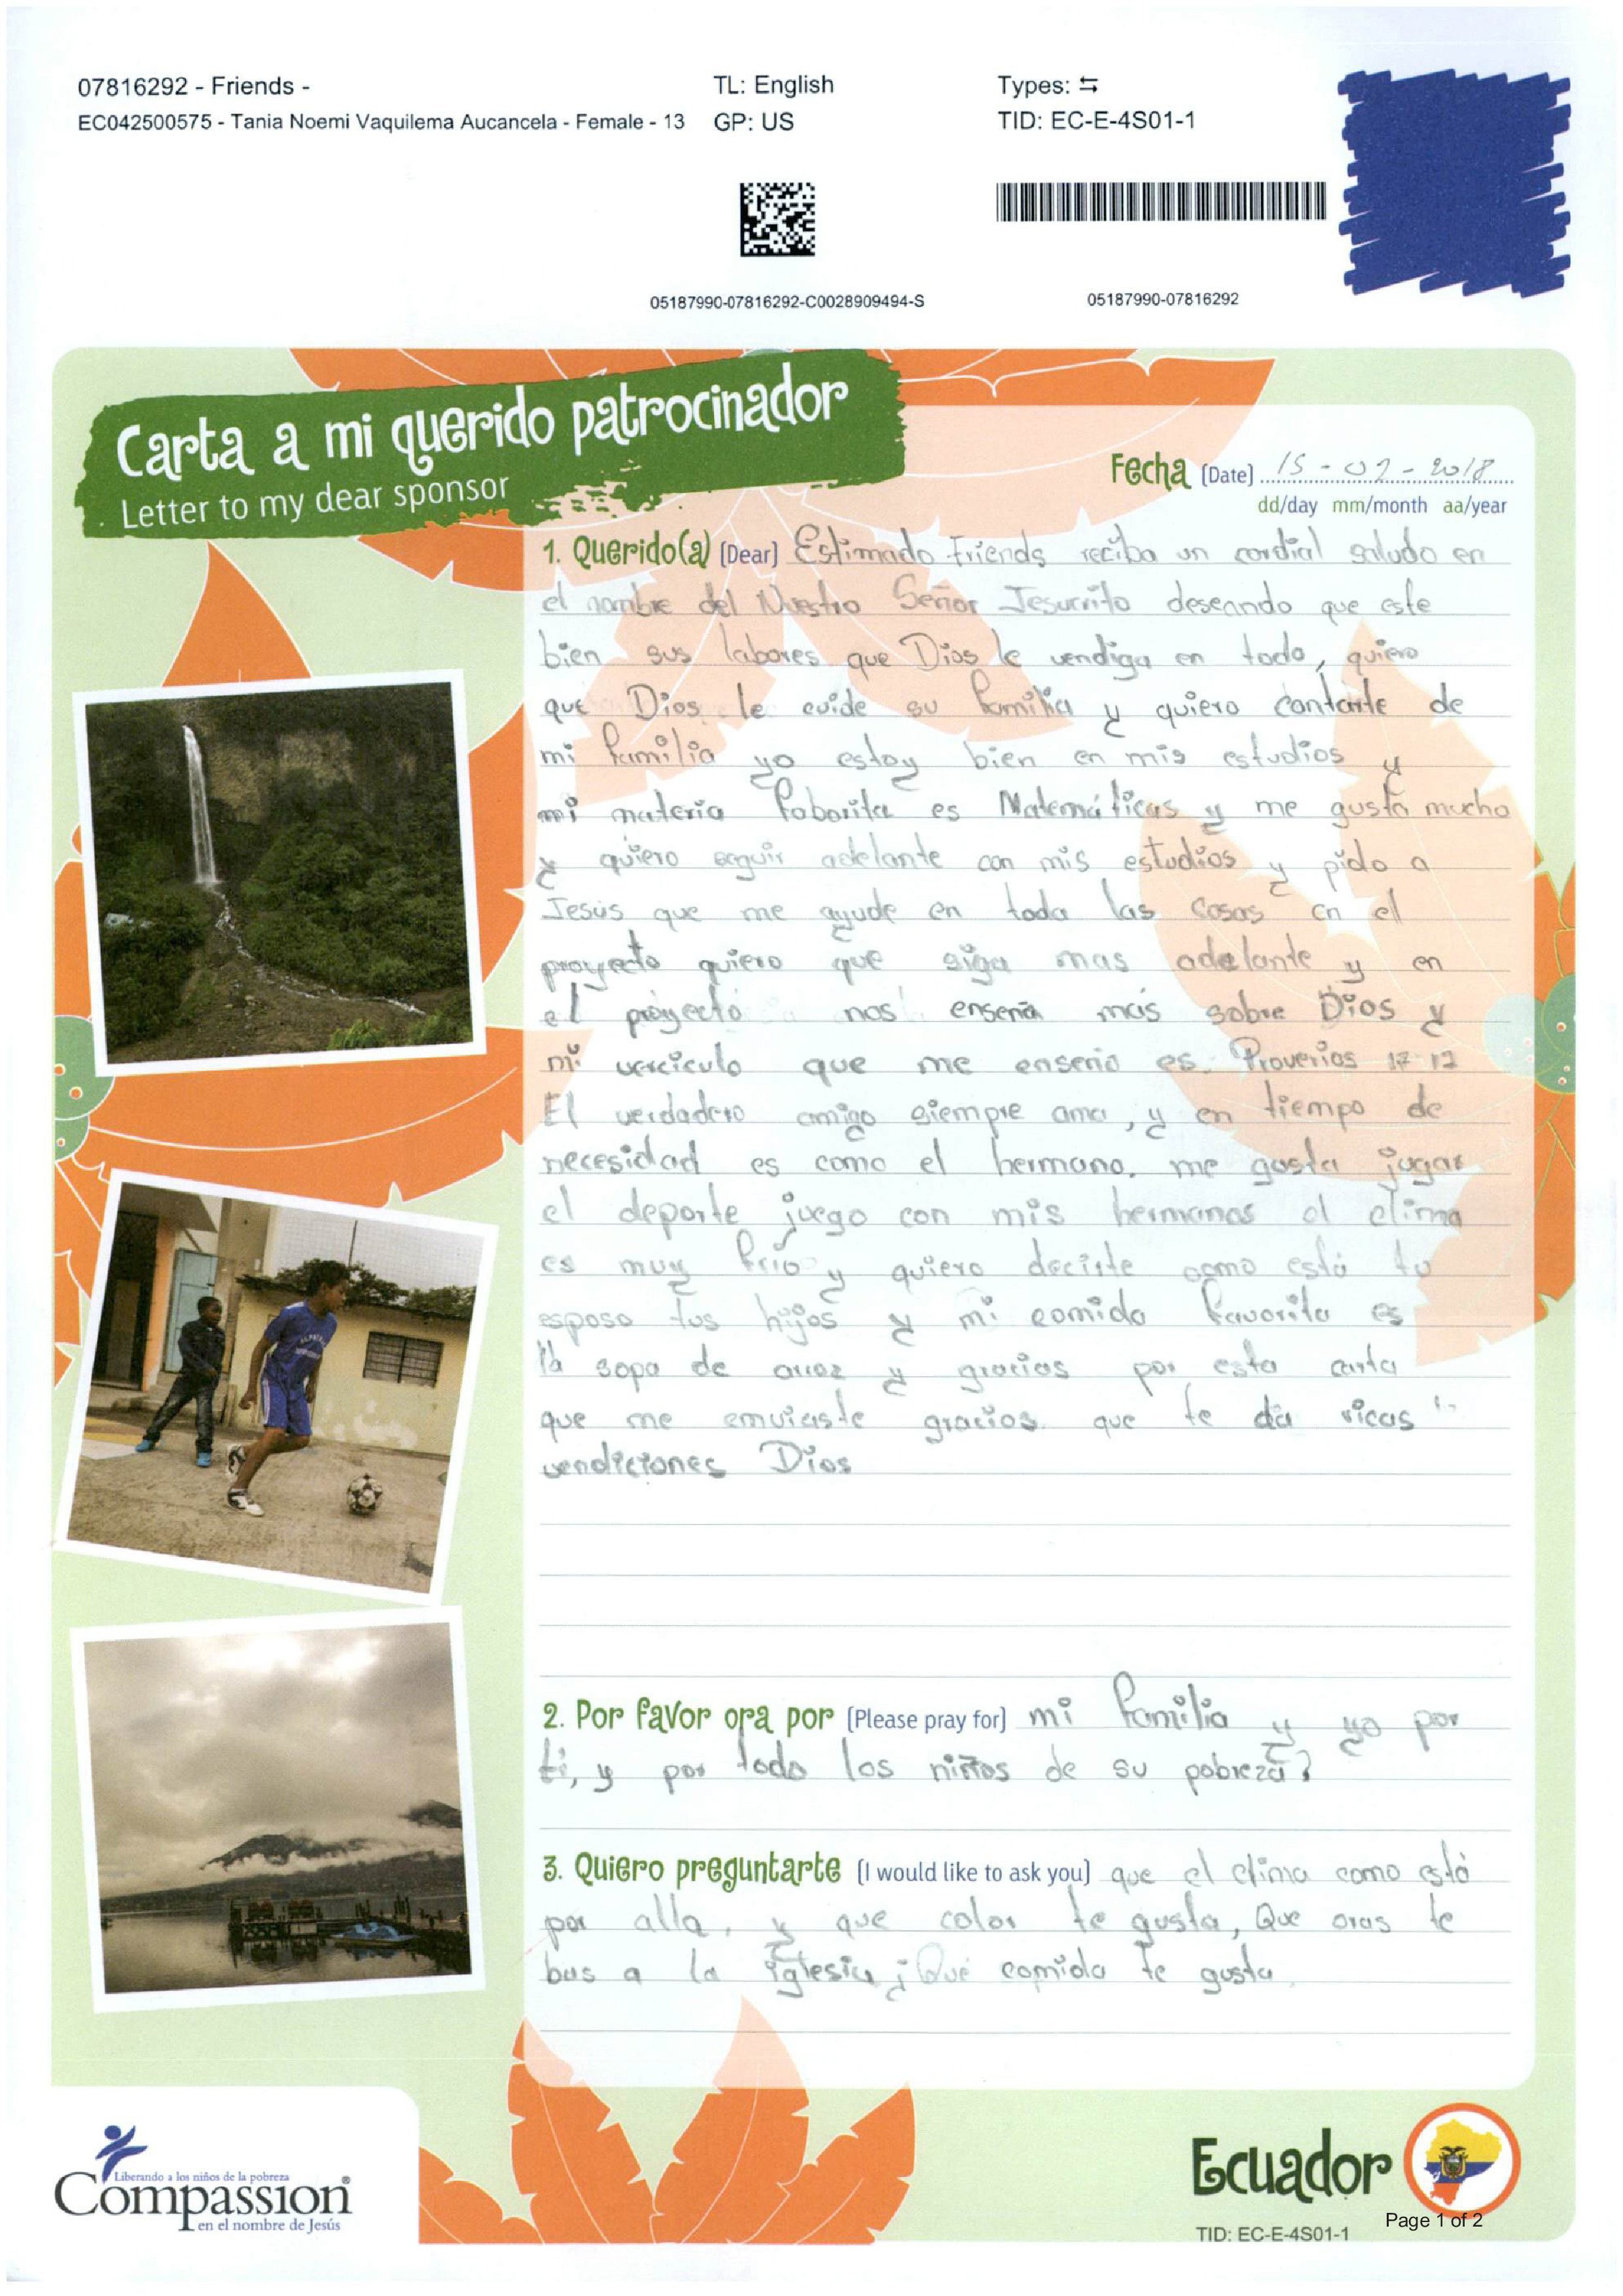 07816292 - Friends -
TL: English
Types: ⇆
EC042500575 - Tania Noemi Vaquilema Aucancela - Female - 13
GP: US
TID: EC-E-4S01-1
05187990-07816292-C0028909494-S
05187990-07816292
Carta a mi querido patrocinador
Letter to my dear sponsor
Fecha (Date) 15 - 02 - 2018
dd/day mm/month aa/year
1. Querido(a) (Dear) Estimado Friends reciba un cordial saludo en
el nombre del Nuestro Señor Jesucrito deseando que este
bien sus labores que Dios le vendiga en todo, quiero
que Dios le cuide su familia y quiero contarte de
mi familia yo estoy bien en mis estudios y
mi materia faborita es Matemáticas y me gusta mucho
y quiero seguir adelante con mis estudios y pido a
Jesús que me ayude en toda las cosas en el
proyecto quiero que siga mas adelante y en
el proyecto nos enseña más sobre Dios y
mi verciculo que me enseño es. Proverios 17:17
El verdadero amigo siempre ama, y en tiempo de
necesidad es como el hermano. me gusta jugar
el deporte juego con mis hermanos el clima
es muy frio y quiero decirte como está tu
esposo tus hijos y mi comida favorita es
la sopa de arroz y gracias por esta carta
que me emviaste gracios que te da ricas
vendiciones Dios
2. Por favor ora por (Please pray for) mi familia y yo por
ti, y por todo los niños de su pobreza?
3. Quiero preguntarte (I would like to ask you) que el clima como está
por alla, y que color te gusta, Que oras te
bas a la iglesia ¿Qué comida te gusta.
Liberando a los niños de la pobreza
Compassion®
en el nombre de Jesús
Ecuador
Page 1 of 2
TID: EC-E-4S01-1